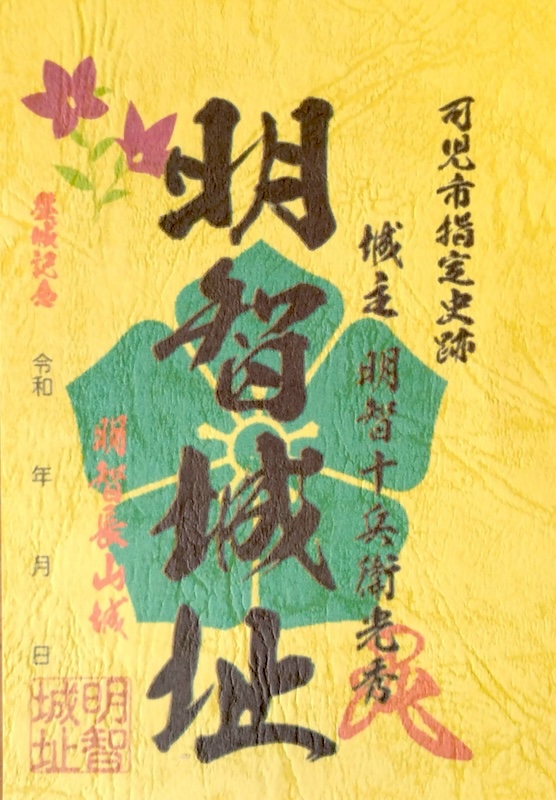 可児市指定史跡
城主 明智十兵衛光秀
明智城址
登城記念
明智長山城
令和 年 月 日
明智
城址